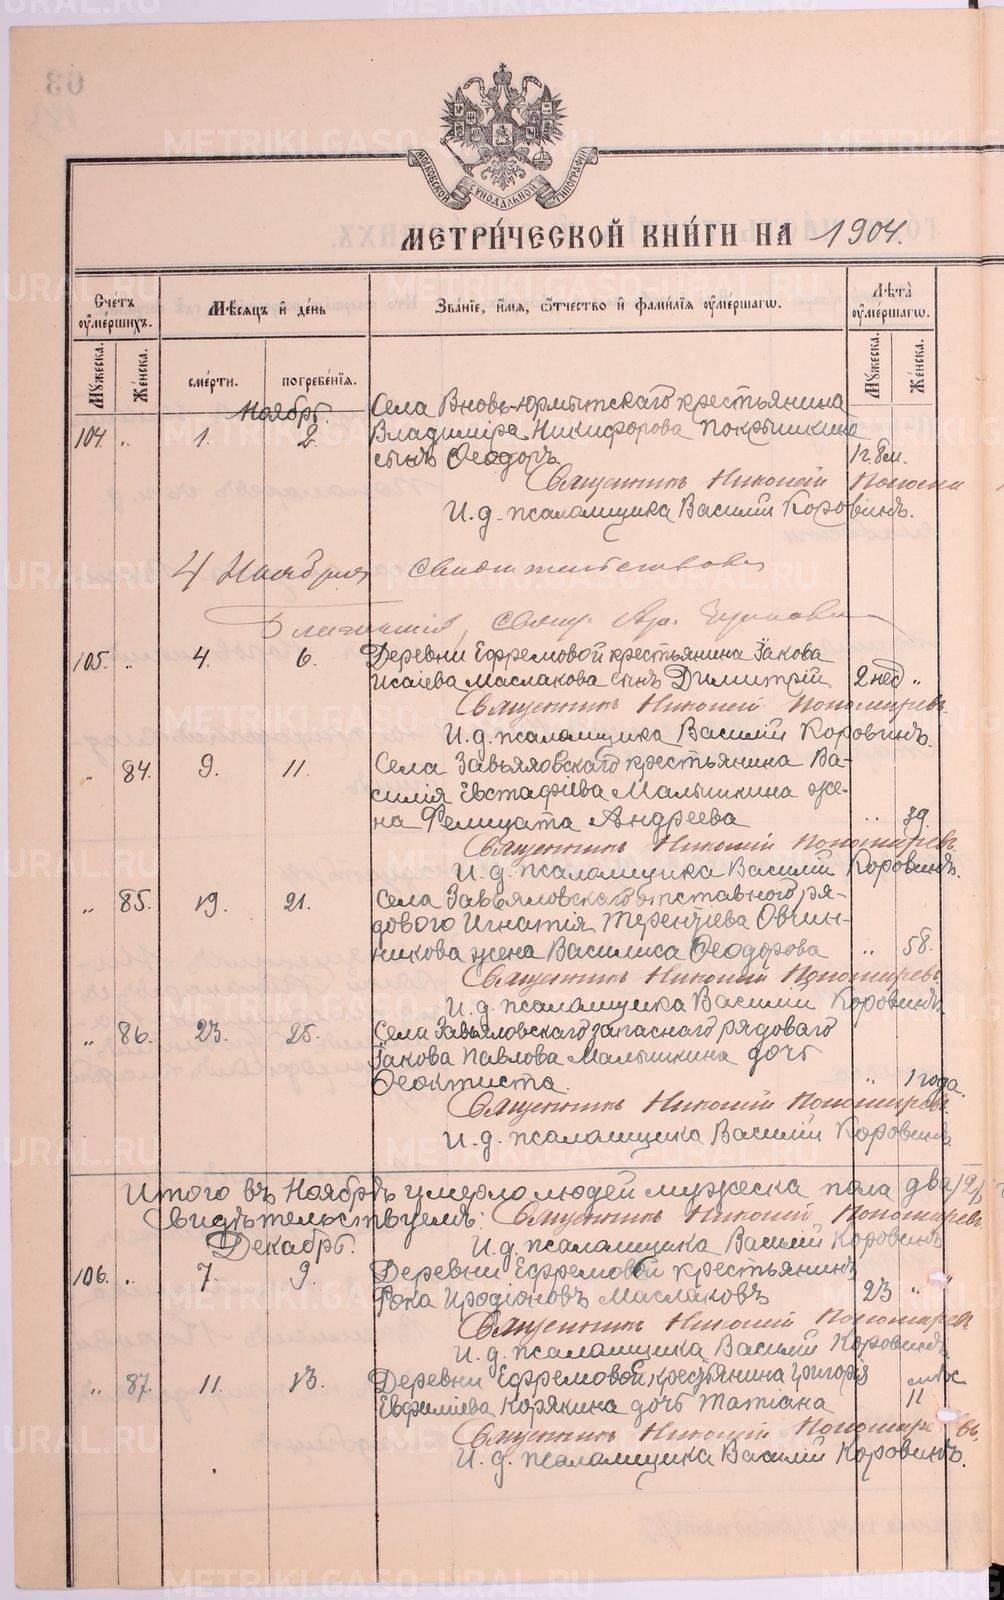 МОСКОВСКОЙ СѴНОДАЛЬНОЙ ТИПОГРАФІИ
МЕТРИ́ЧЕСКОЙ КНИ́ГИ НА 1904.
Сче́тъ оумéршихъ.
Мѣ́сяцъ и҆ де́нь
Зва́нїе, и҆́мя, ѻ҆́тчество и҆ фами́лїя оумéршагѡ.
Лѣ́та оумéршагѡ.
Мꙋ́жеска.
Же́нска.
сме́рти.
погребе́нїя.
Мꙋ́жеска.
Же́нска.
Ноябрь.
Села Вновь-Юрмытскаго крестьянина
104. „ 1. 2. Владиміра Никифорова Покрышкина
сынъ Ѳеодоръ. 1 г. 8 м.
Священникъ Николай
И. д. псаломщика Василій Коровинъ.
4 Ноября свидѣтельствовалъ
Благочинный, свящ.
105. „ 4. 6. Деревни Ефремовой крестьянина Іакова
Исаіева Маслакова сынъ Димитрій 2 нед „
Священникъ Николай Пономаревъ.
И. д. псаломщика Василій Коровинъ.
„ 84. 9. 11. Села Завьяловскаго крестьянина Ва-
силія Евстафіева Малышкина же-
на Фелицата Андреева „ 39.
Священникъ Николай Пономаревъ.
И. д. псаломщика Василій Коровинъ.
„ 85. 19. 21. Села Завьяловскаго отставного ря-
дового Игнатія Терентіева Овчин-
никова жена Василиса Ѳеодорова „ 58.
Священникъ Николай Пономаревъ
И. д. псаломщика Василій Коровинъ.
„ 86. 23. 25. Села Завьяловскаго запаснаго рядоваго
Іакова Павлова Малышкина дочь
Ѳеоктиста. „ 1 года.
Священникъ Николай Пономаревъ
И. д. псаломщика Василій Коровинъ.
Итого въ Ноябрѣ умерло людей мужеска пола два /2/
Свидѣтельствуемъ: Священникъ Николай Пономаревъ
Декабрь. И. д. псаломщика Василій Коровинъ
106. „ 7. 9. Деревни Ефремовой крестьянинъ
Фока Иродіоновъ Маслаковъ 23 „
Священникъ Николай Пономаревъ
И. д. псаломщика Василій Коровинъ.
„ 87. 11. 13. Деревни Ефремовой крестьянина Григорія
Евфиміева Корякина дочь Татіана 11
Священникъ Николай Пономаревъ.
И. д. псаломщика Василій Коровинъ.
METRIKI.GASO-URAL.RU